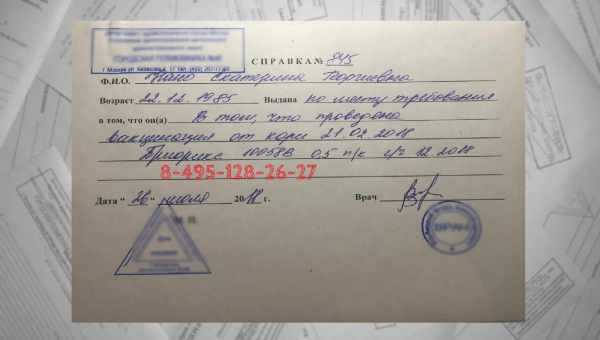 СПРАВКА № 845
Ф.И.О. Екатерина Георгиевна
Возраст 22.12.1985 Выдана по месту требования
в том, что он(а) В том, что проведена
вакцинация от кори 21 02 2018
Приорикс 0,5 п/к с/г 12 2018
8-495-128-26-27
Дата " 26 " июля 2018 г. Врач
М.П.
ВРАЧ